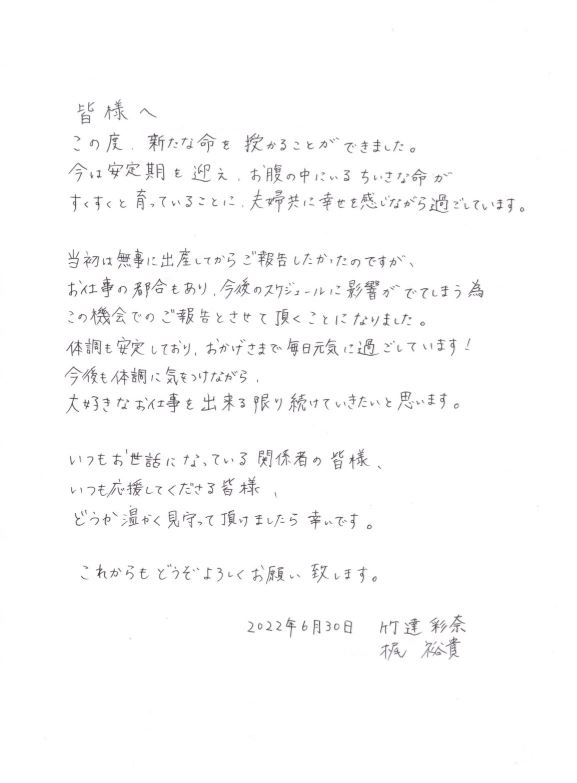 皆様へ
この度、新たな命を授かることができました。
今は安定期を迎え、お腹の中にいるちいさな命が
すくすくと育っていることに、夫婦共に幸せを感じながら過ごしています。
当初は無事に出産してからご報告したかったのですが、
お仕事の都合もあり、今後のスケジュールに影響がでてしまう為
この機会でのご報告とさせて頂くことになりました。
体調も安定しており、おかげさまで毎日元気に過ごしています！
今後も体調に気をつけながら、
大好きなお仕事を出来る限り続けていきたいと思います。
いつもお世話になっている関係者の皆様、
いつも応援してくださる皆様、
どうか温かく見守って頂けましたら幸いです。
これからもどうぞよろしくお願い致します。
2022年6月30日 竹達 彩奈
梶 裕貴